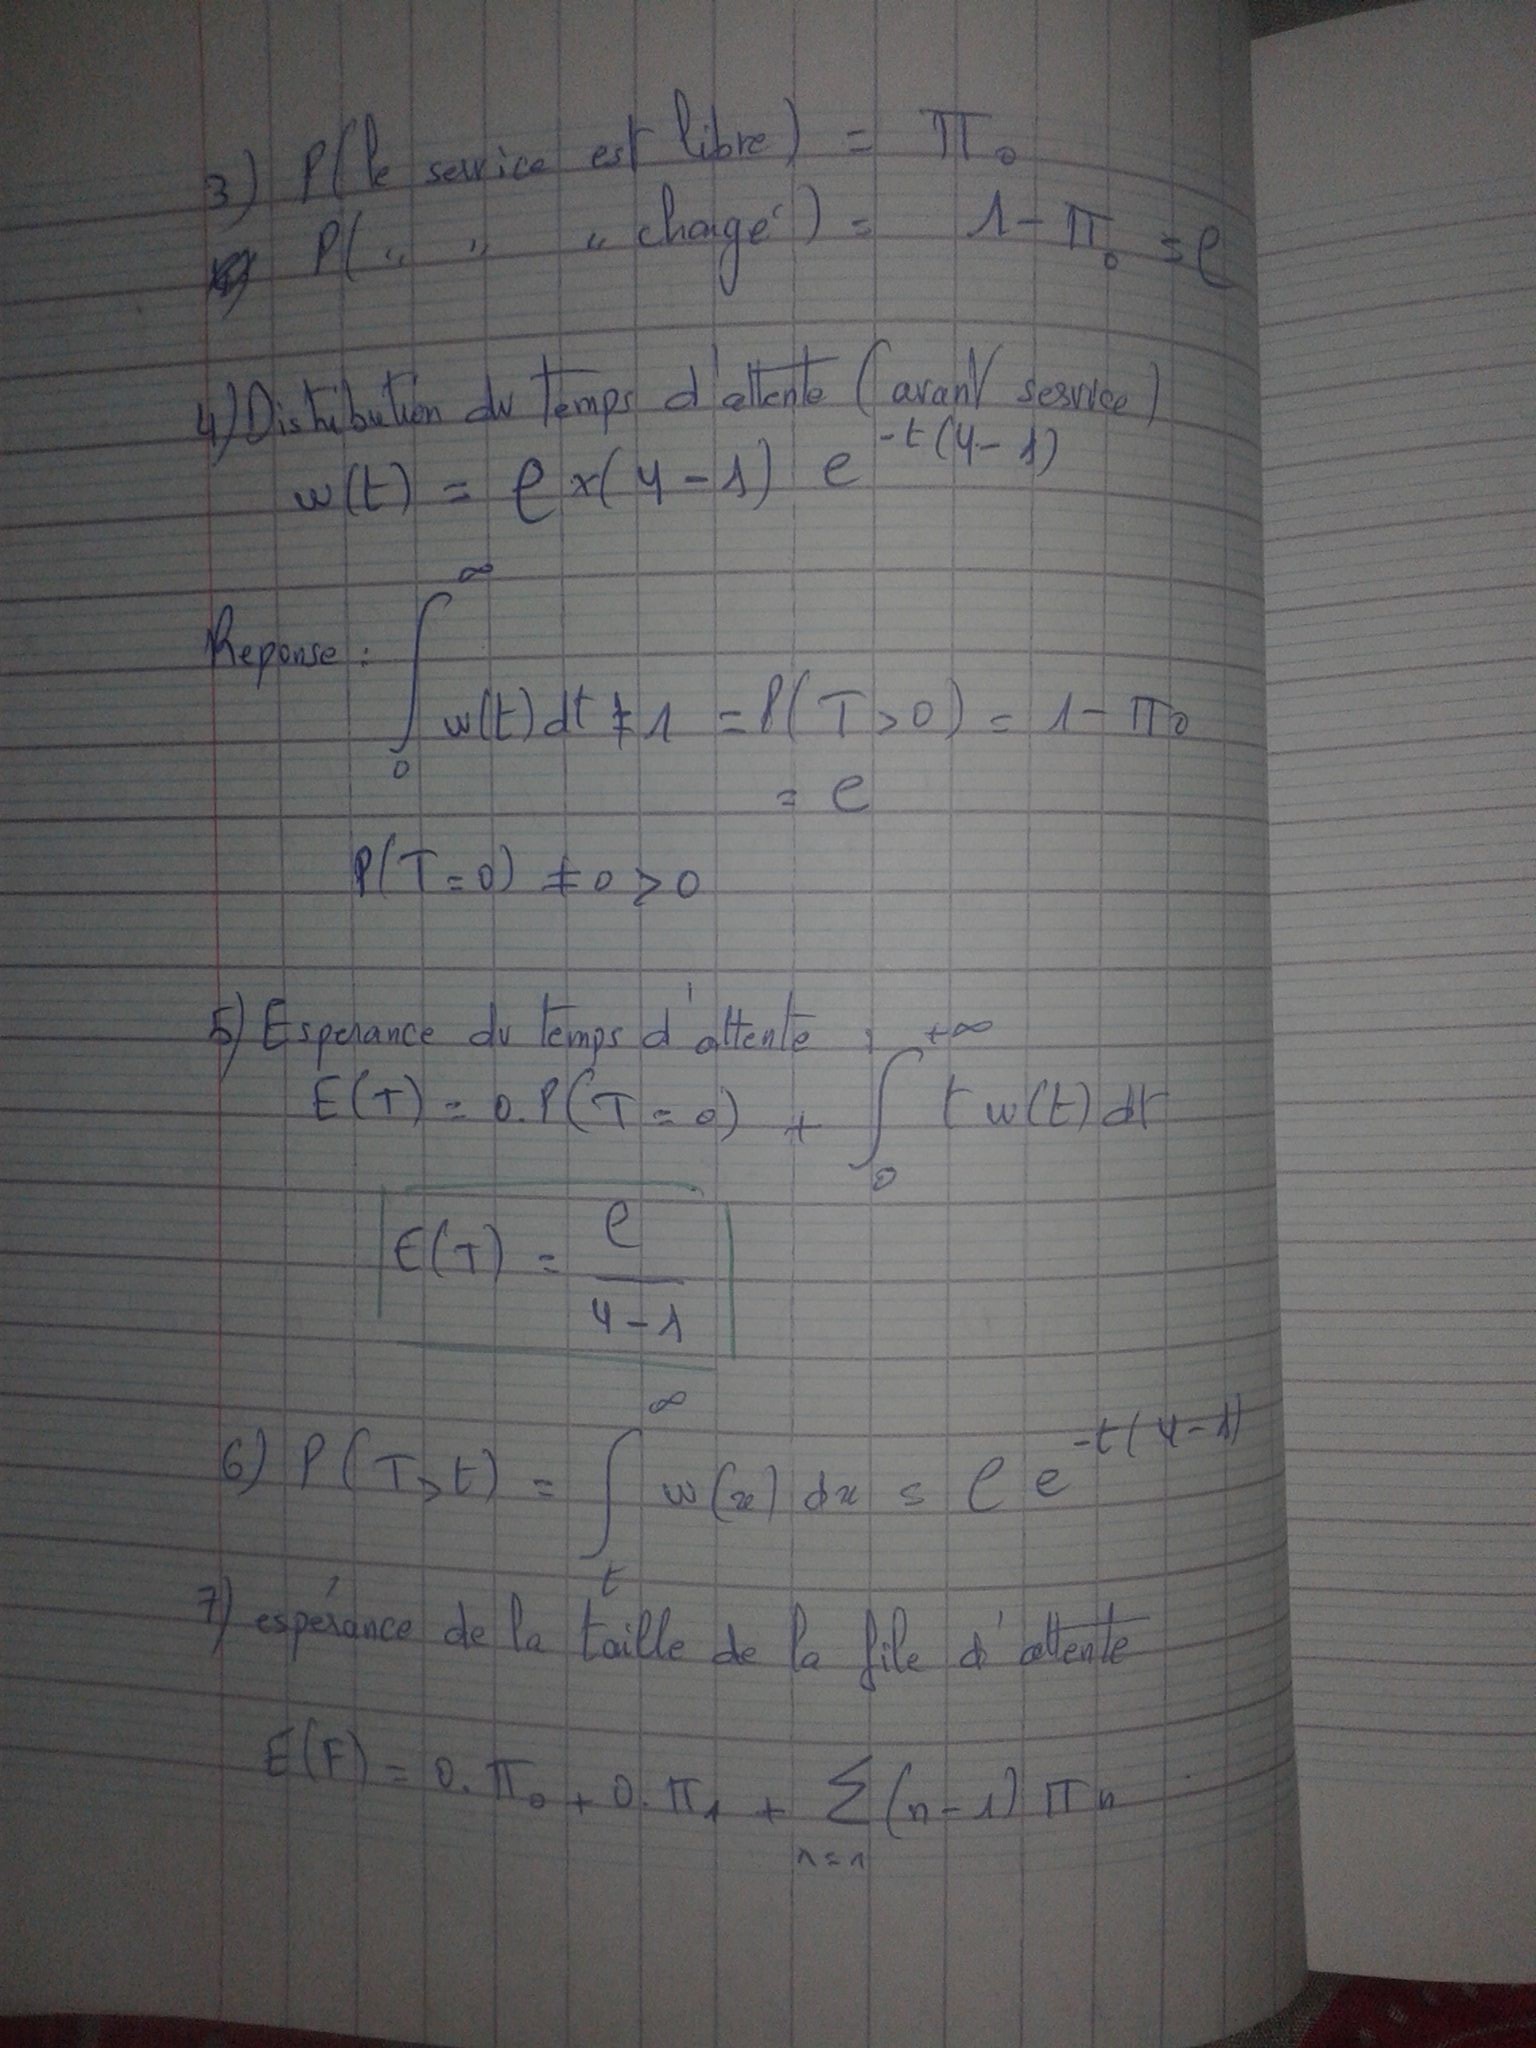 3) P(le service est libre) = Π₀
P( " " " chargé) = 1 - Π₀ = ρ
4) Distribution du temps d'attente (avant service)
w(t) = ρ x (4 - 1) e^{-t(4-1)}
Reponse : ∫₀^∞ w(t) dt ≠ 1 = P(T > 0) = 1 - Π₀
= ρ
P(T = 0) ≠ 0 > 0
5) Esperance du temps d'attente :
E(T) = 0. P(T = 0) + ∫₀^{+∞} t w(t) dt
E(T) = ρ / (4 - 1)
6) P(T > t) = ∫ₜ^∞ w(x) dx = ρ e^{-t(4-1)}
7) espérance de la taille de la file d'attente
E(F) = 0. Π₀ + 0. Π₁ + Σ_{n=1} (n-1) Πn